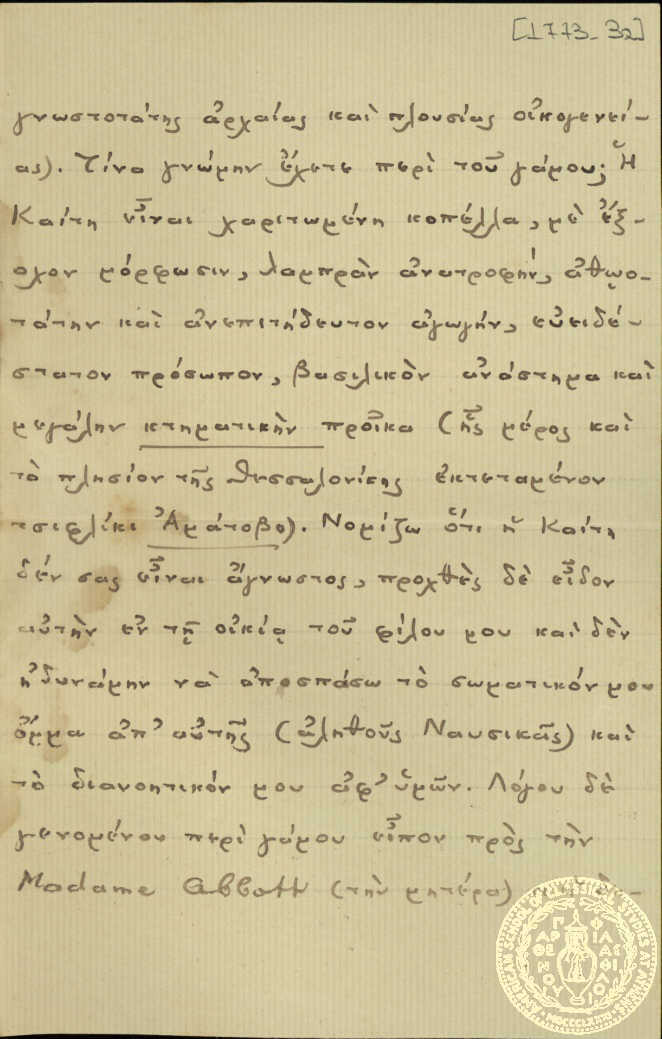 [1773-32]
γνωστοτάτης ἀρχαίας καὶ πλουσίας οἰκογενεί-
ας). Τίνα γνώμην ἔχετε περὶ τοῦ γάμου; Ἡ
Καίτη εἶναι χαριτωμένη κοπέλλα, μὲ ἔξ-
οχον μόρφωσιν, λαμπρὰν ἀνατροφήν, ἀθῳο-
τάτην καὶ ἀνεπιτήδευτον ἀγωγήν, εὐειδέ-
στατον πρόσωπον, βασιλικὸν ἀνάστημα καὶ
μεγάλην κτηματικὴν προῖκα (ἧς μέρος καὶ
τὸ πλησίον τῆς Θεσσαλονίκης ἐκτεταμένον
τσιφλίκι Ἀμάτοβο). Νομίζω ὅτι ἡ Καίτη
δέν σας εἶναι ἄγνωστος, προχθὲς δὲ εἶδον
αὐτὴν ἐν τῇ οἰκίᾳ τοῦ φίλου μου καὶ δὲν
ἠδυνάμην νὰ ἀποσπάσω τὸ σωματικόν μου
ὄμμα ἀπ' αὐτῆς (ἀληθοῦς Ναυσικᾶς) καὶ
τὸ διανοητικόν μου ἀφ' ὑμῶν. Λόγου δὲ
γενομένου περὶ γάμου εἶπον πρὸς τὴν
Madame Abbott (τὴν μητέρα)
AMERICAN SCHOOL OF CLASSICAL STUDIES AT ATHENS
MDCCCLXXXI